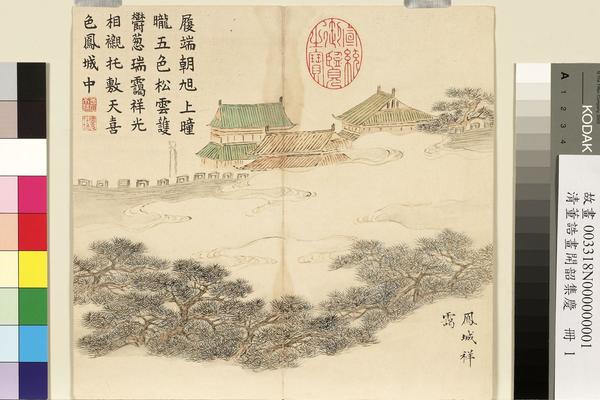 履端朝旭上曈
曨五色松雲護
鬱葱瑞靄祥光
相襯托敷天喜
色鳳城中
宣統
御覽
之寶
鳳城祥
靄
A 1 2 3 4
KODAK
故畫 003318N000000001
清董誥畫開韶集慶 冊 1